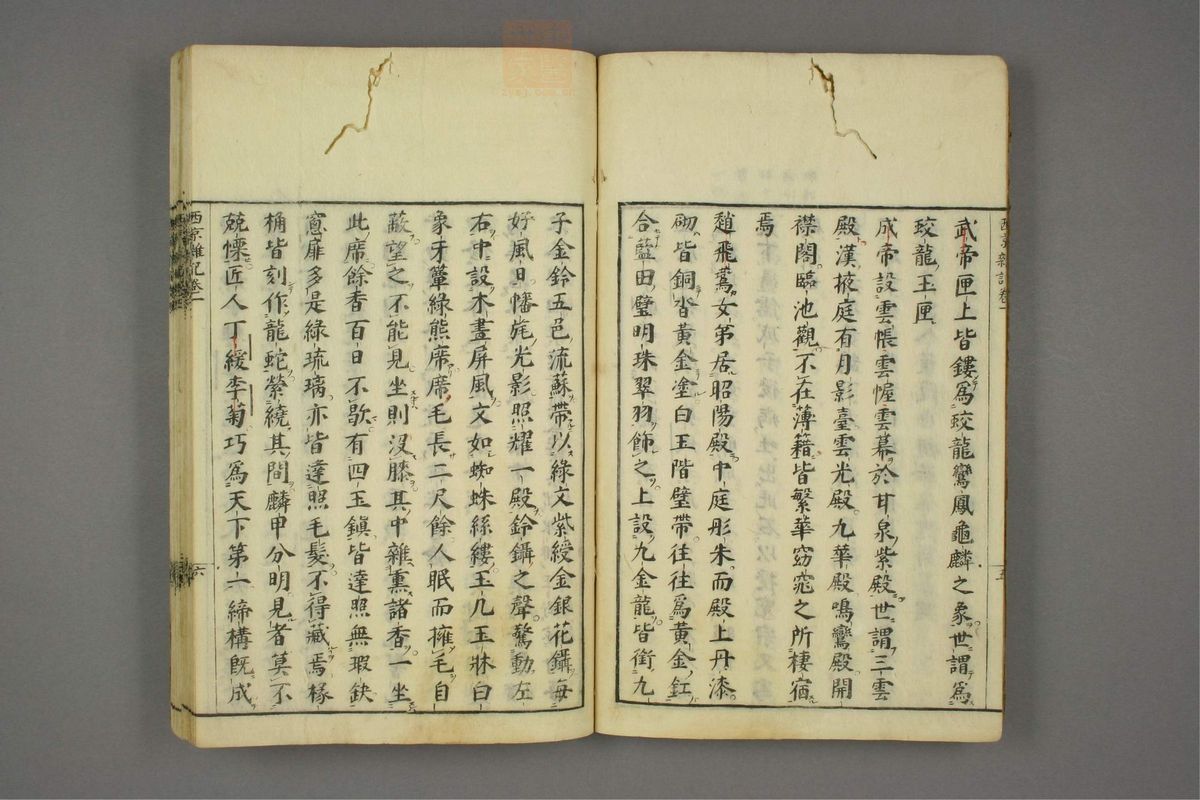 武帝匣上皆鏤爲蛟龍鸞鳳龜麟之象世謂爲
蛟龍玉匣
成帝設雲帳雲幄雲幕於甘泉紫殿世謂三雲
殿漢掖庭有月影臺雲光殿九華殿鳴鸞殿開
襟閣臨池觀不在薄籍皆繁華窈窕之所棲宿
焉
趙飛鷰女弟居昭陽殿中庭彤朱而殿上丹漆
砌皆銅沓黃金塗白玉階壁帶往往爲黃金釭
合藍田璧明珠翠羽飾之上設九金龍皆銜九
子金鈴五色流蘇帶以綠文紫綬金銀花鑷每
好風日幡旄光影照耀一殿鈴鑷之聲驚動左
右中設木畫屏風文如蜘蛛絲縷玉几玉牀白
象牙簟綠熊席席毛長二尺餘人眠而擁毛自
蔽望之不能見坐則沒膝其中雜熏諸香一坐
此席餘香百日不歇有四玉鎭皆達照無瑕缺
窻扉多是綠琉璃亦皆達照毛髮不得藏焉椽
桷皆刻作龍蛇縈繞其間麟甲分明見者莫不
兢慄匠人丁緩李菊巧爲天下第一締構旣成
西京雜記卷一
六